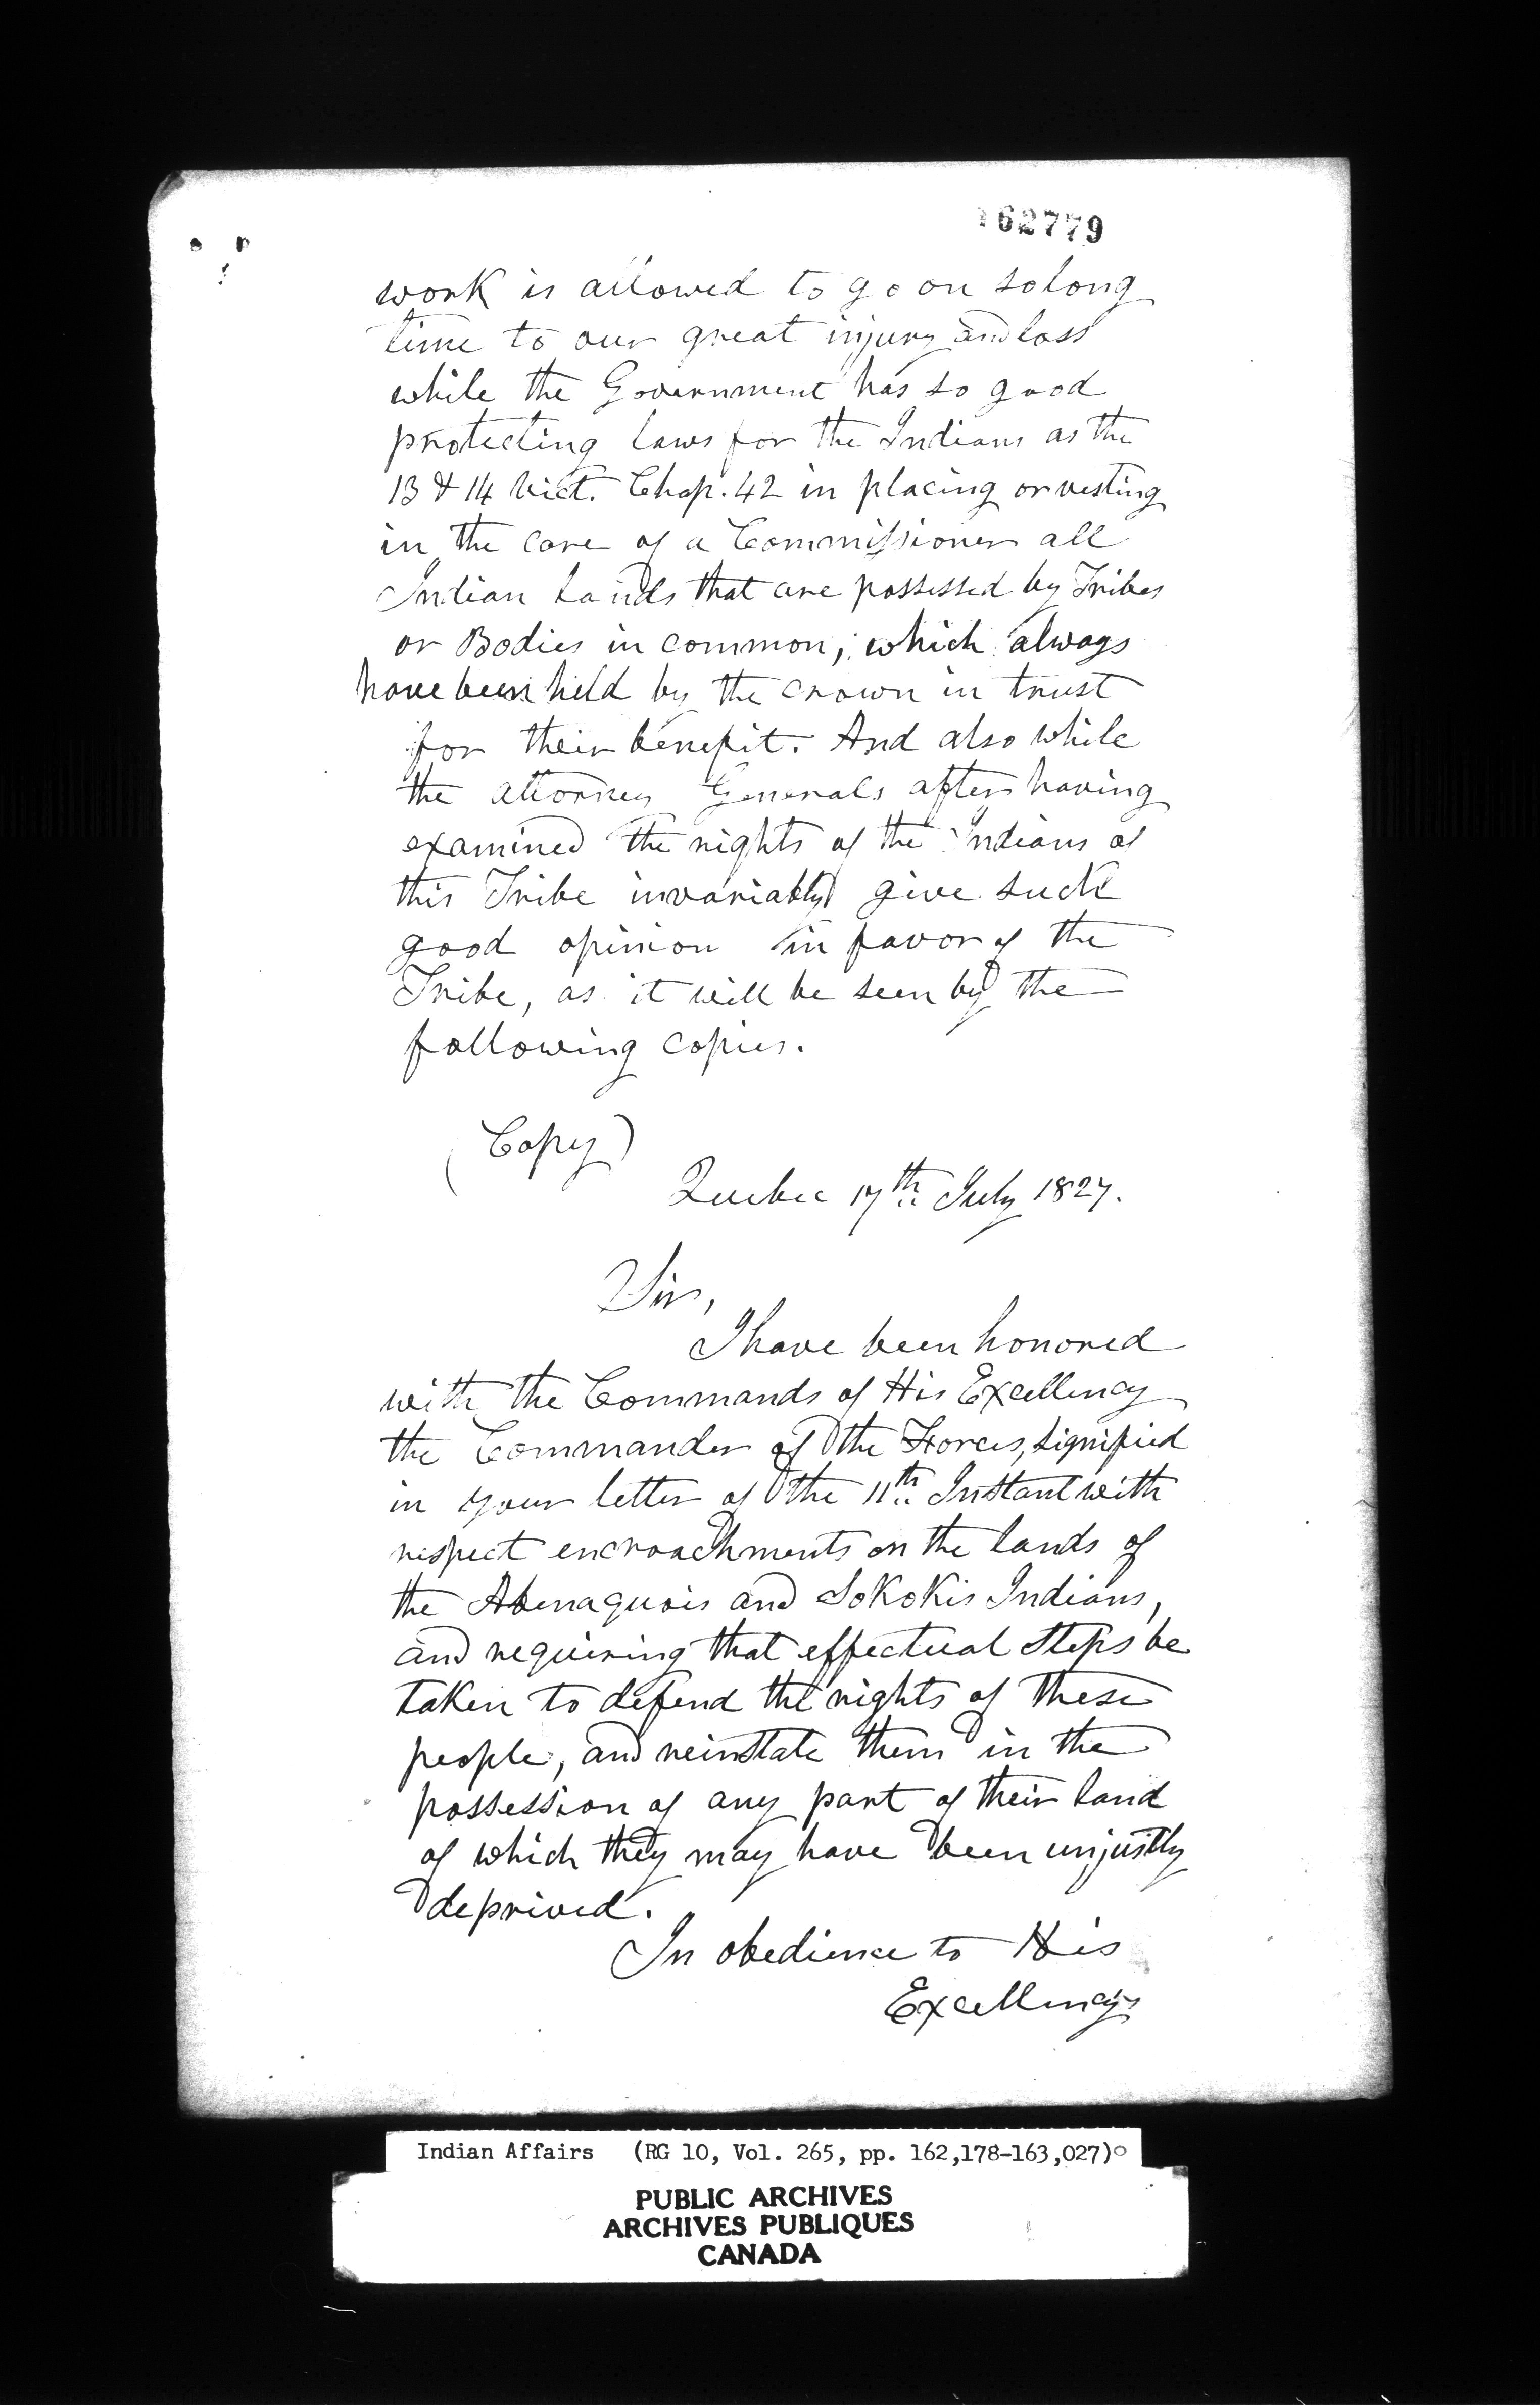 162779
work is allowed to go on so long
time to our great injury and loss
while the Government has so good
protecting laws for the Indians as the
13 & 14 Vict. Chap. 42 in placing or vesting
in the care of a Commissioner all
Indian Lands that are possessed by Tribes
or Bodies in common; which always
have been held by the crown in trust
for their benefit. And also while
the attorney Generals after having
examined the rights of the Indians of
this Tribe invariably give such
good opinion in favor of the
Tribe, as it will be seen by the
following copies.
(Copy)
Quebec 17th July 1827.
Sir,
I have been honored
with the Commands of His Excellency
the Commander of the Forces, signified
in your letter of the 11th Instant with
respect encroachments on the lands of
the Abenaquois and Sokokis Indians,
and requiring that effectual steps be
taken to defend the rights of these
people, and reinstate them in the
possession of any part of their land
of which they may have been unjustly
deprived.
In obedience to His
Excellency's
Indian Affairs (RG 10, Vol. 265, pp. 162,178-163,027)
PUBLIC ARCHIVES
ARCHIVES PUBLIQUES
CANADA